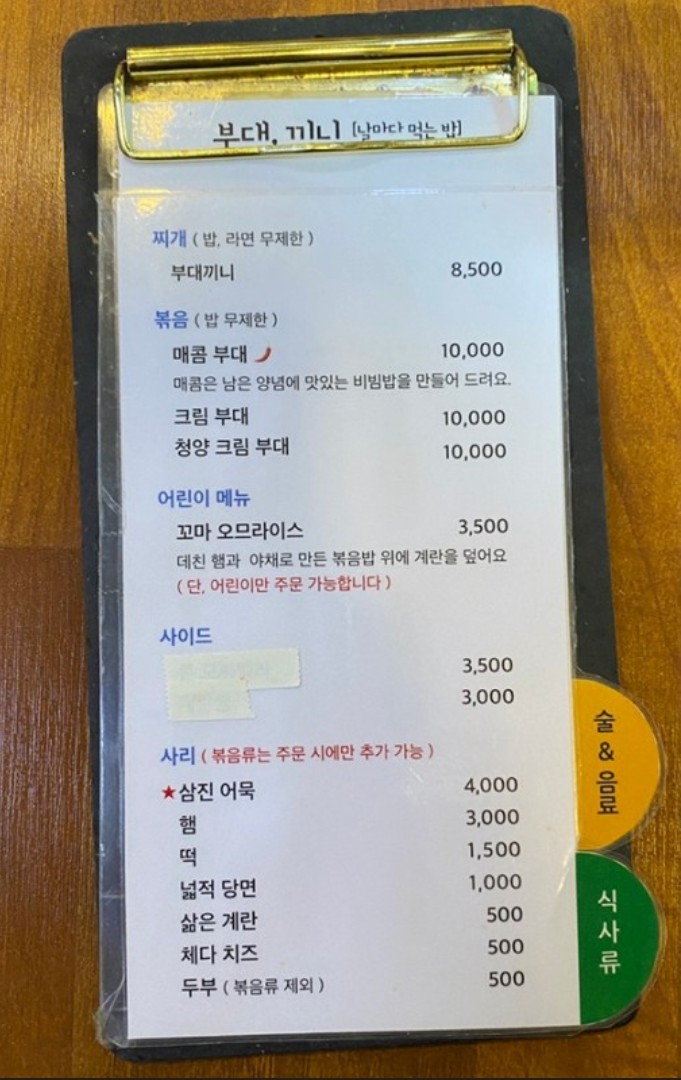 부대, 끼니 [날마다 먹는 밥]
찌개 ( 밥, 라면 무제한 )
부대끼니 8,500
볶음 ( 밥 무제한 )
매콤 부대 10,000
매콤은 남은 양념에 맛있는 비빔밥을 만들어 드려요.
크림 부대 10,000
청양 크림 부대 10,000
어린이 메뉴
꼬마 오므라이스 3,500
데친 햄과 야채로 만든 볶음밥 위에 계란을 덮어요
( 단, 어린이만 주문 가능합니다 )
사이드
3,500
3,000
사리 ( 볶음류는 주문 시에만 추가 가능 )
★삼진 어묵 4,000
햄 3,000
떡 1,500
넓적 당면 1,000
삶은 계란 500
체다 치즈 500
두부 ( 볶음류 제외 ) 500
술 & 음료
식사류